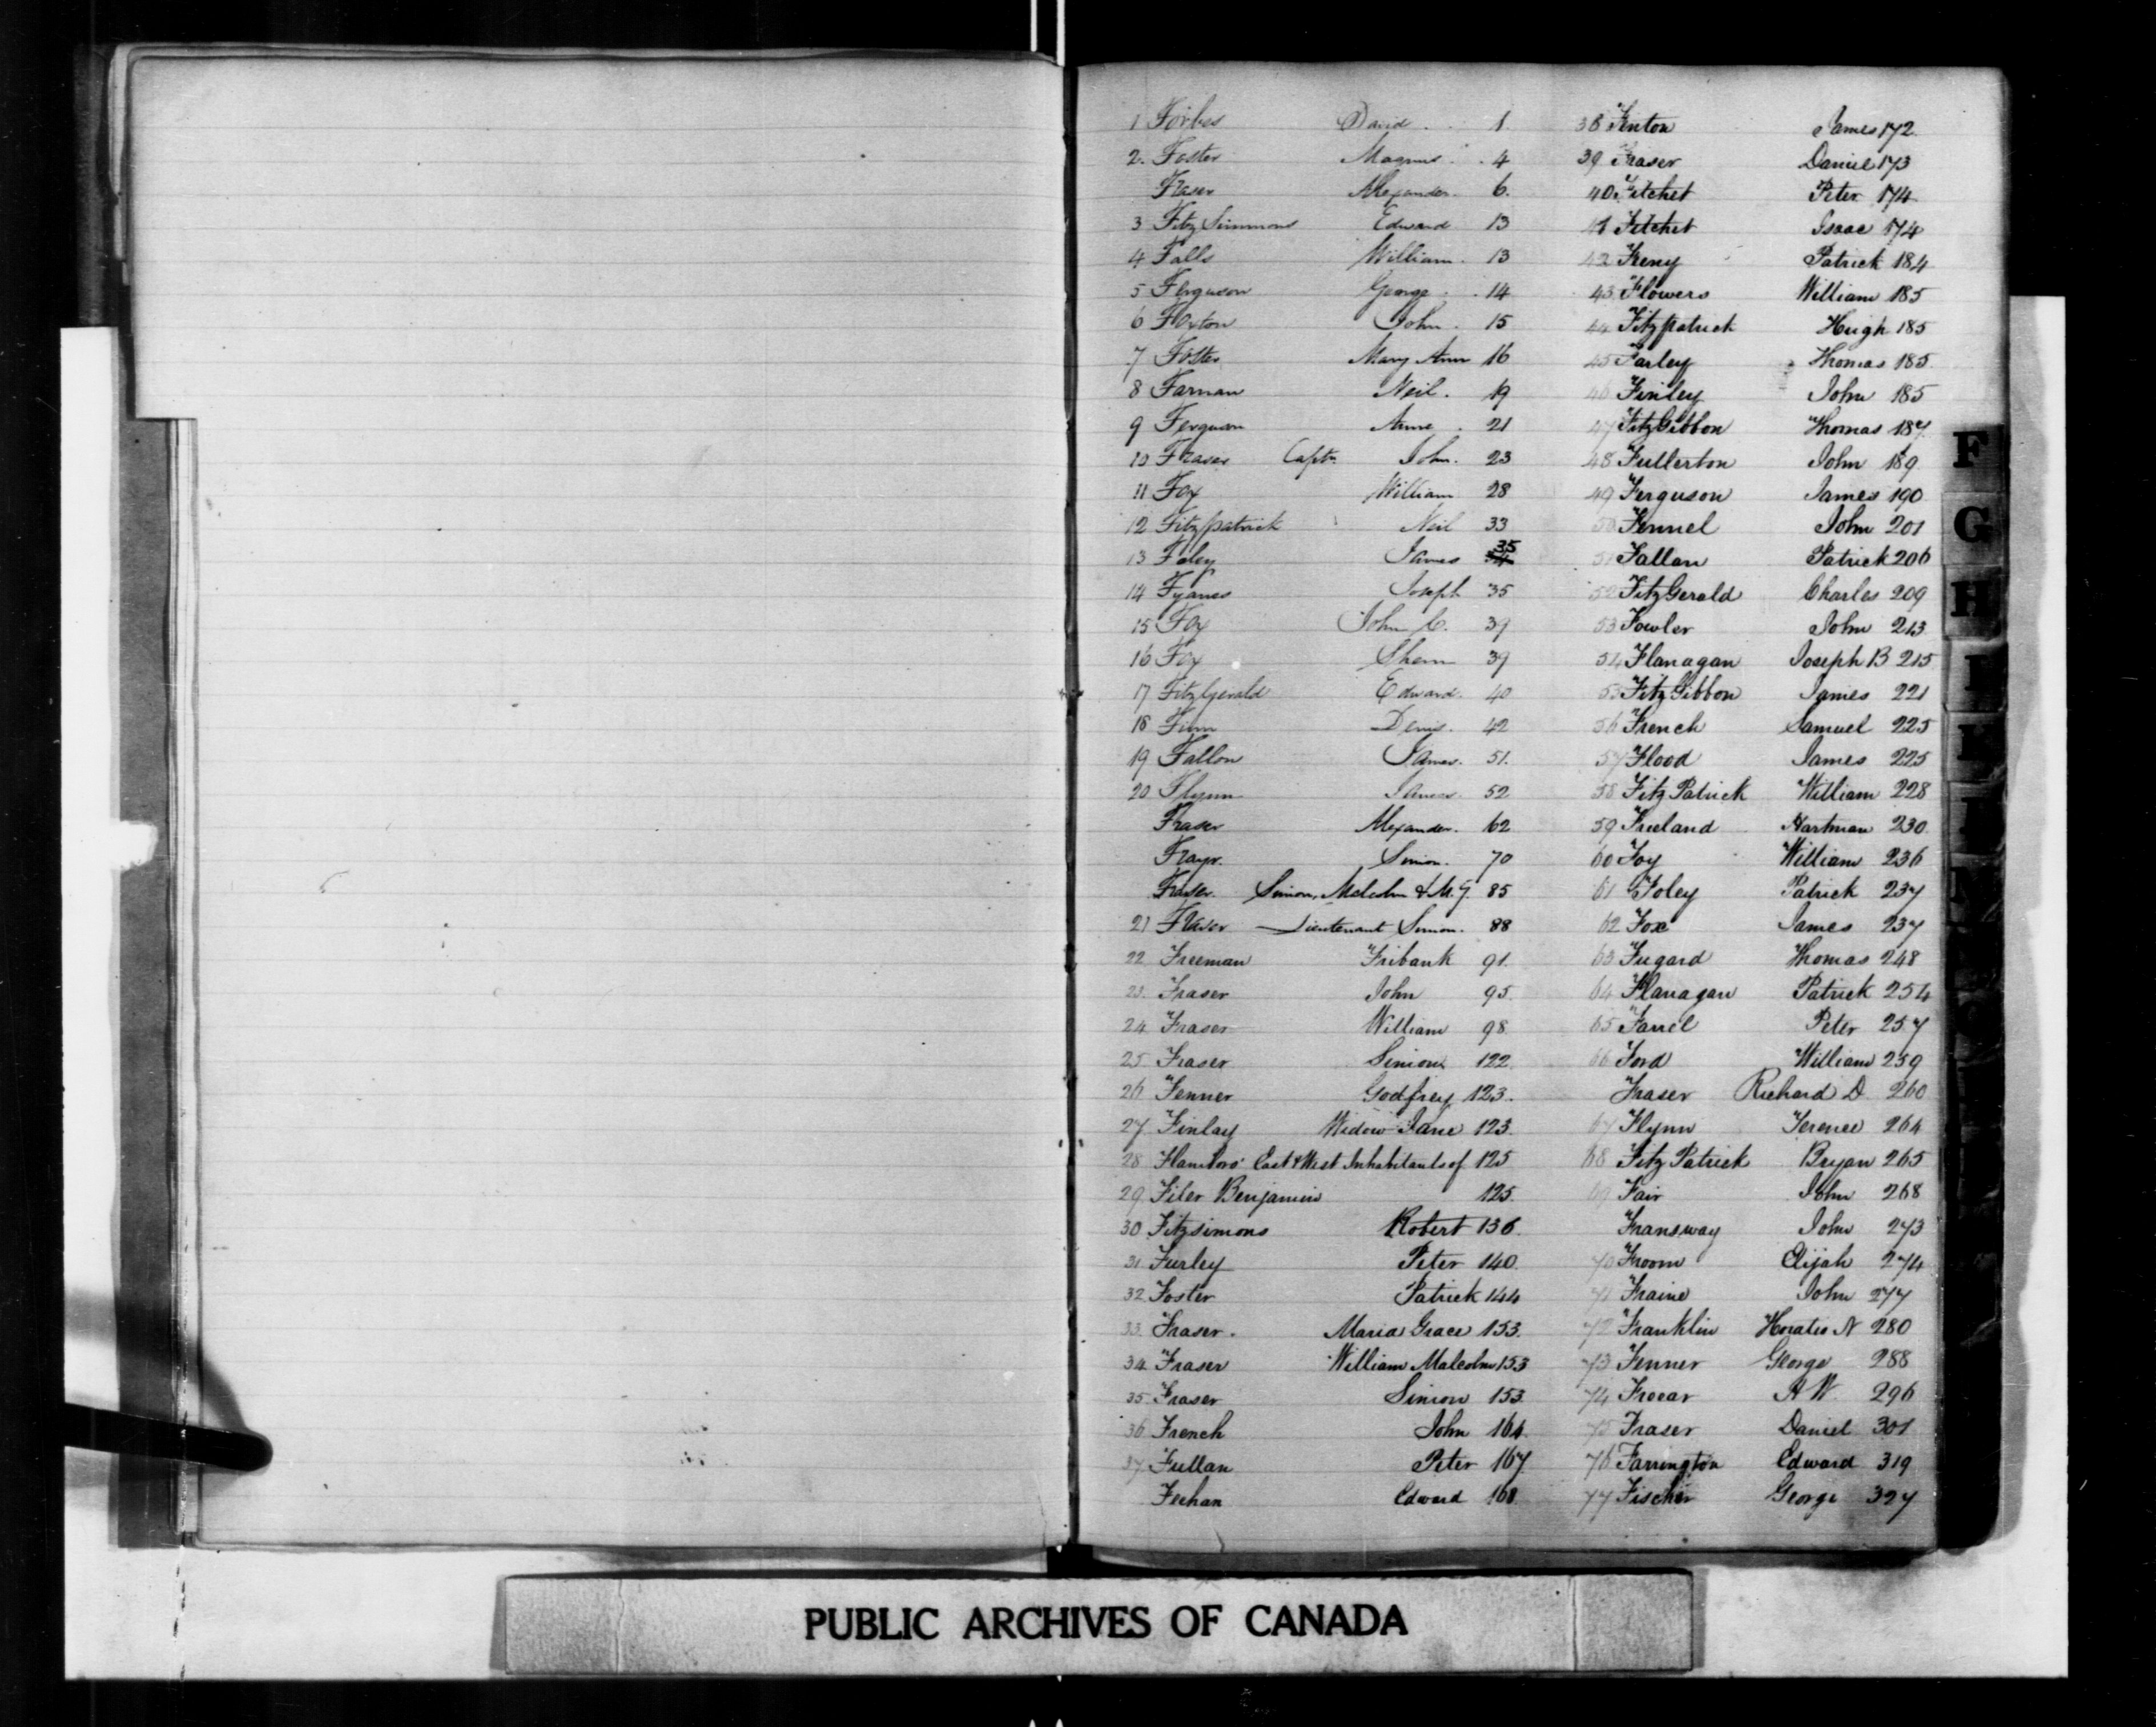 1 Forbes David 1
2 Foster Magnus 4
Fraser Alexander 6
3 FitzSimmons Edward 13
4 Falls William 13
5 Ferguson George 14
6 Floxton John 15
7 Foster Mary Ann 16
8 Farnan Neil 19
9 Ferguson Anne 21
10 Fraser Captn John 23
11 Fox William 28
12 Fitzpatrick Neil 33
13 Foley James 35
14 Fyanes Joseph 35
15 Fox John C. 39
16 Fox Shem 39
17 FitzGerald Edward 40
18 Finn Denis 42
19 Fallon James 51
20 Flynn James 52
Fraser Alexander 62
Simon 70
Fraser Simon, Malcolm & M.G. 85
21 Fraser Lieutenant Simon 88
22 Freeman Fribank 91
23 Fraser John 95
24 Fraser William 98
25 Fraser Simon 122
26 Fenner Godfrey 123
27 Finlay Widow Jane 123
28 Flamboro East & West Inhabitants of 125
29 Filer Benjamin 125
30 Fitzsimons Robert 136
31 Furley Peter 140
32 Foster Patrick 144
33 Fraser Maria Grace 153
34 Fraser William Malcolm 153
35 Fraser Simon 153
36 French John 164
37 Fullan Peter 167
Feehan Edward 168
38 Fenton James 172
39 Fraser Daniel 173
40 Fitchet Peter 174
41 Fitchet Isaac 174
42 Feeny Patrick 184
43 Flowers William 185
44 Fitzpatrick Hugh 185
45 Farley Thomas 185
46 Finley John 185
47 FitzGibbon Thomas 187
48 Fullerton John 189
49 Ferguson James 190
50 Fennel John 201
51 Fallan Patrick 206
52 FitzGerald Charles 209
53 Fowler John 213
54 Flanagan Joseph B 215
55 FitzGibbon James 221
56 French Samuel 225
57 Flood James 225
58 Fitz Patrick William 228
59 Freeland Hartman 230
60 Foy William 236
61 Foley Patrick 237
62 Fox James 237
63 Fugard Thomas 248
64 Flanagan Patrick 254
65 Farrel Peter 257
66 Ford William 259
Fraser Richard D 260
67 Flynn Terence 264
68 Fitz Patrick Bryan 265
69 Fair John 268
Fransway John 273
70 Froom Elijah 274
71 Fraine John 277
72 Franklin Horatio N 280
73 Fenner George 288
74 A W 296
75 Fraser Daniel 301
76 Farrington Edward 319
77 Fischer George 327
F
G
H
I
N
PUBLIC ARCHIVES OF CANADA